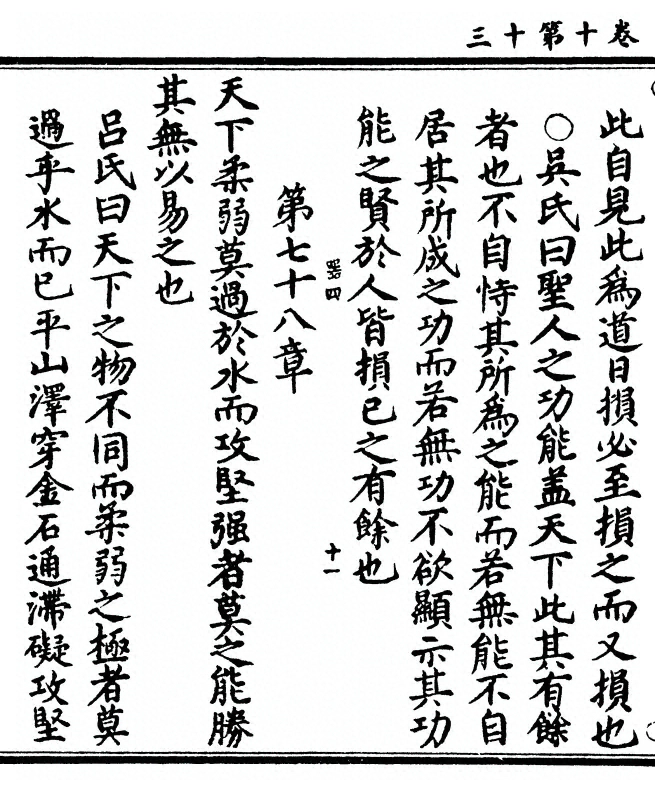 卷十第十三
此自見此為道日損必至損之而又損也
○吳氏曰聖人之功能盖天下此其有餘
者也不自恃其所為之能而若無能不自
居其所成之功而若無功不欲顯示其功
能之賢於人皆損已之有餘也
器四
十一
第七十八章
天下柔弱莫過於水而攻堅强者莫之能勝
其無以易之也
呂氏曰天下之物不同而柔弱之極者莫
過乎水而已平山澤穿金石通滯礙攻堅